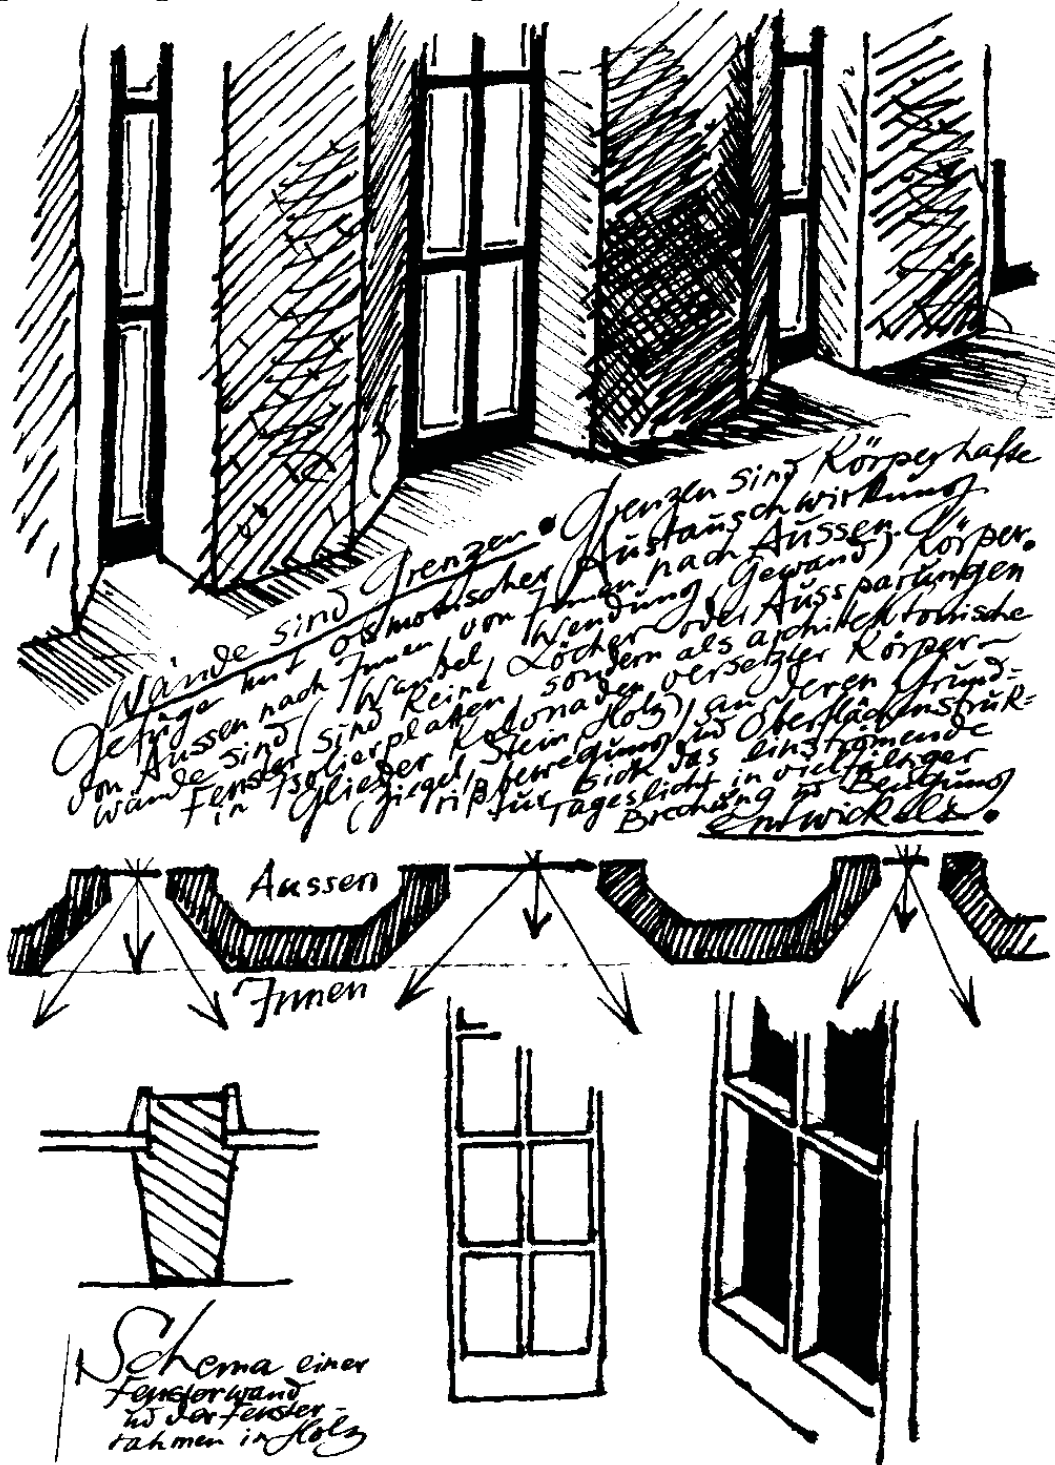 Wände sind Grenzen. Grenzen sind Körperhafte
Gefüge mit osmotischer Austauschwirkung
von Aussen nach Innen, von Innen nach Aussen.
Wände sind (Wandel, Wendung, Gewand) Körper.
Fenster sind keine Löcher oder Aussparungen
in Isolierplatten, sondern als architektonische
Glieder Kolonaden versetzter Körper-
(Ziegel, Stein, Holz), an deren Grund-
rißbewegung und Oberflächenstruk-
tur sich das einströmende
Tageslicht in vielfältiger
Brechung u Beugung
entwickelt.
Aussen
Innen
Schema einer
Fensterwand
ud der Fenster-
rahmen in Holz